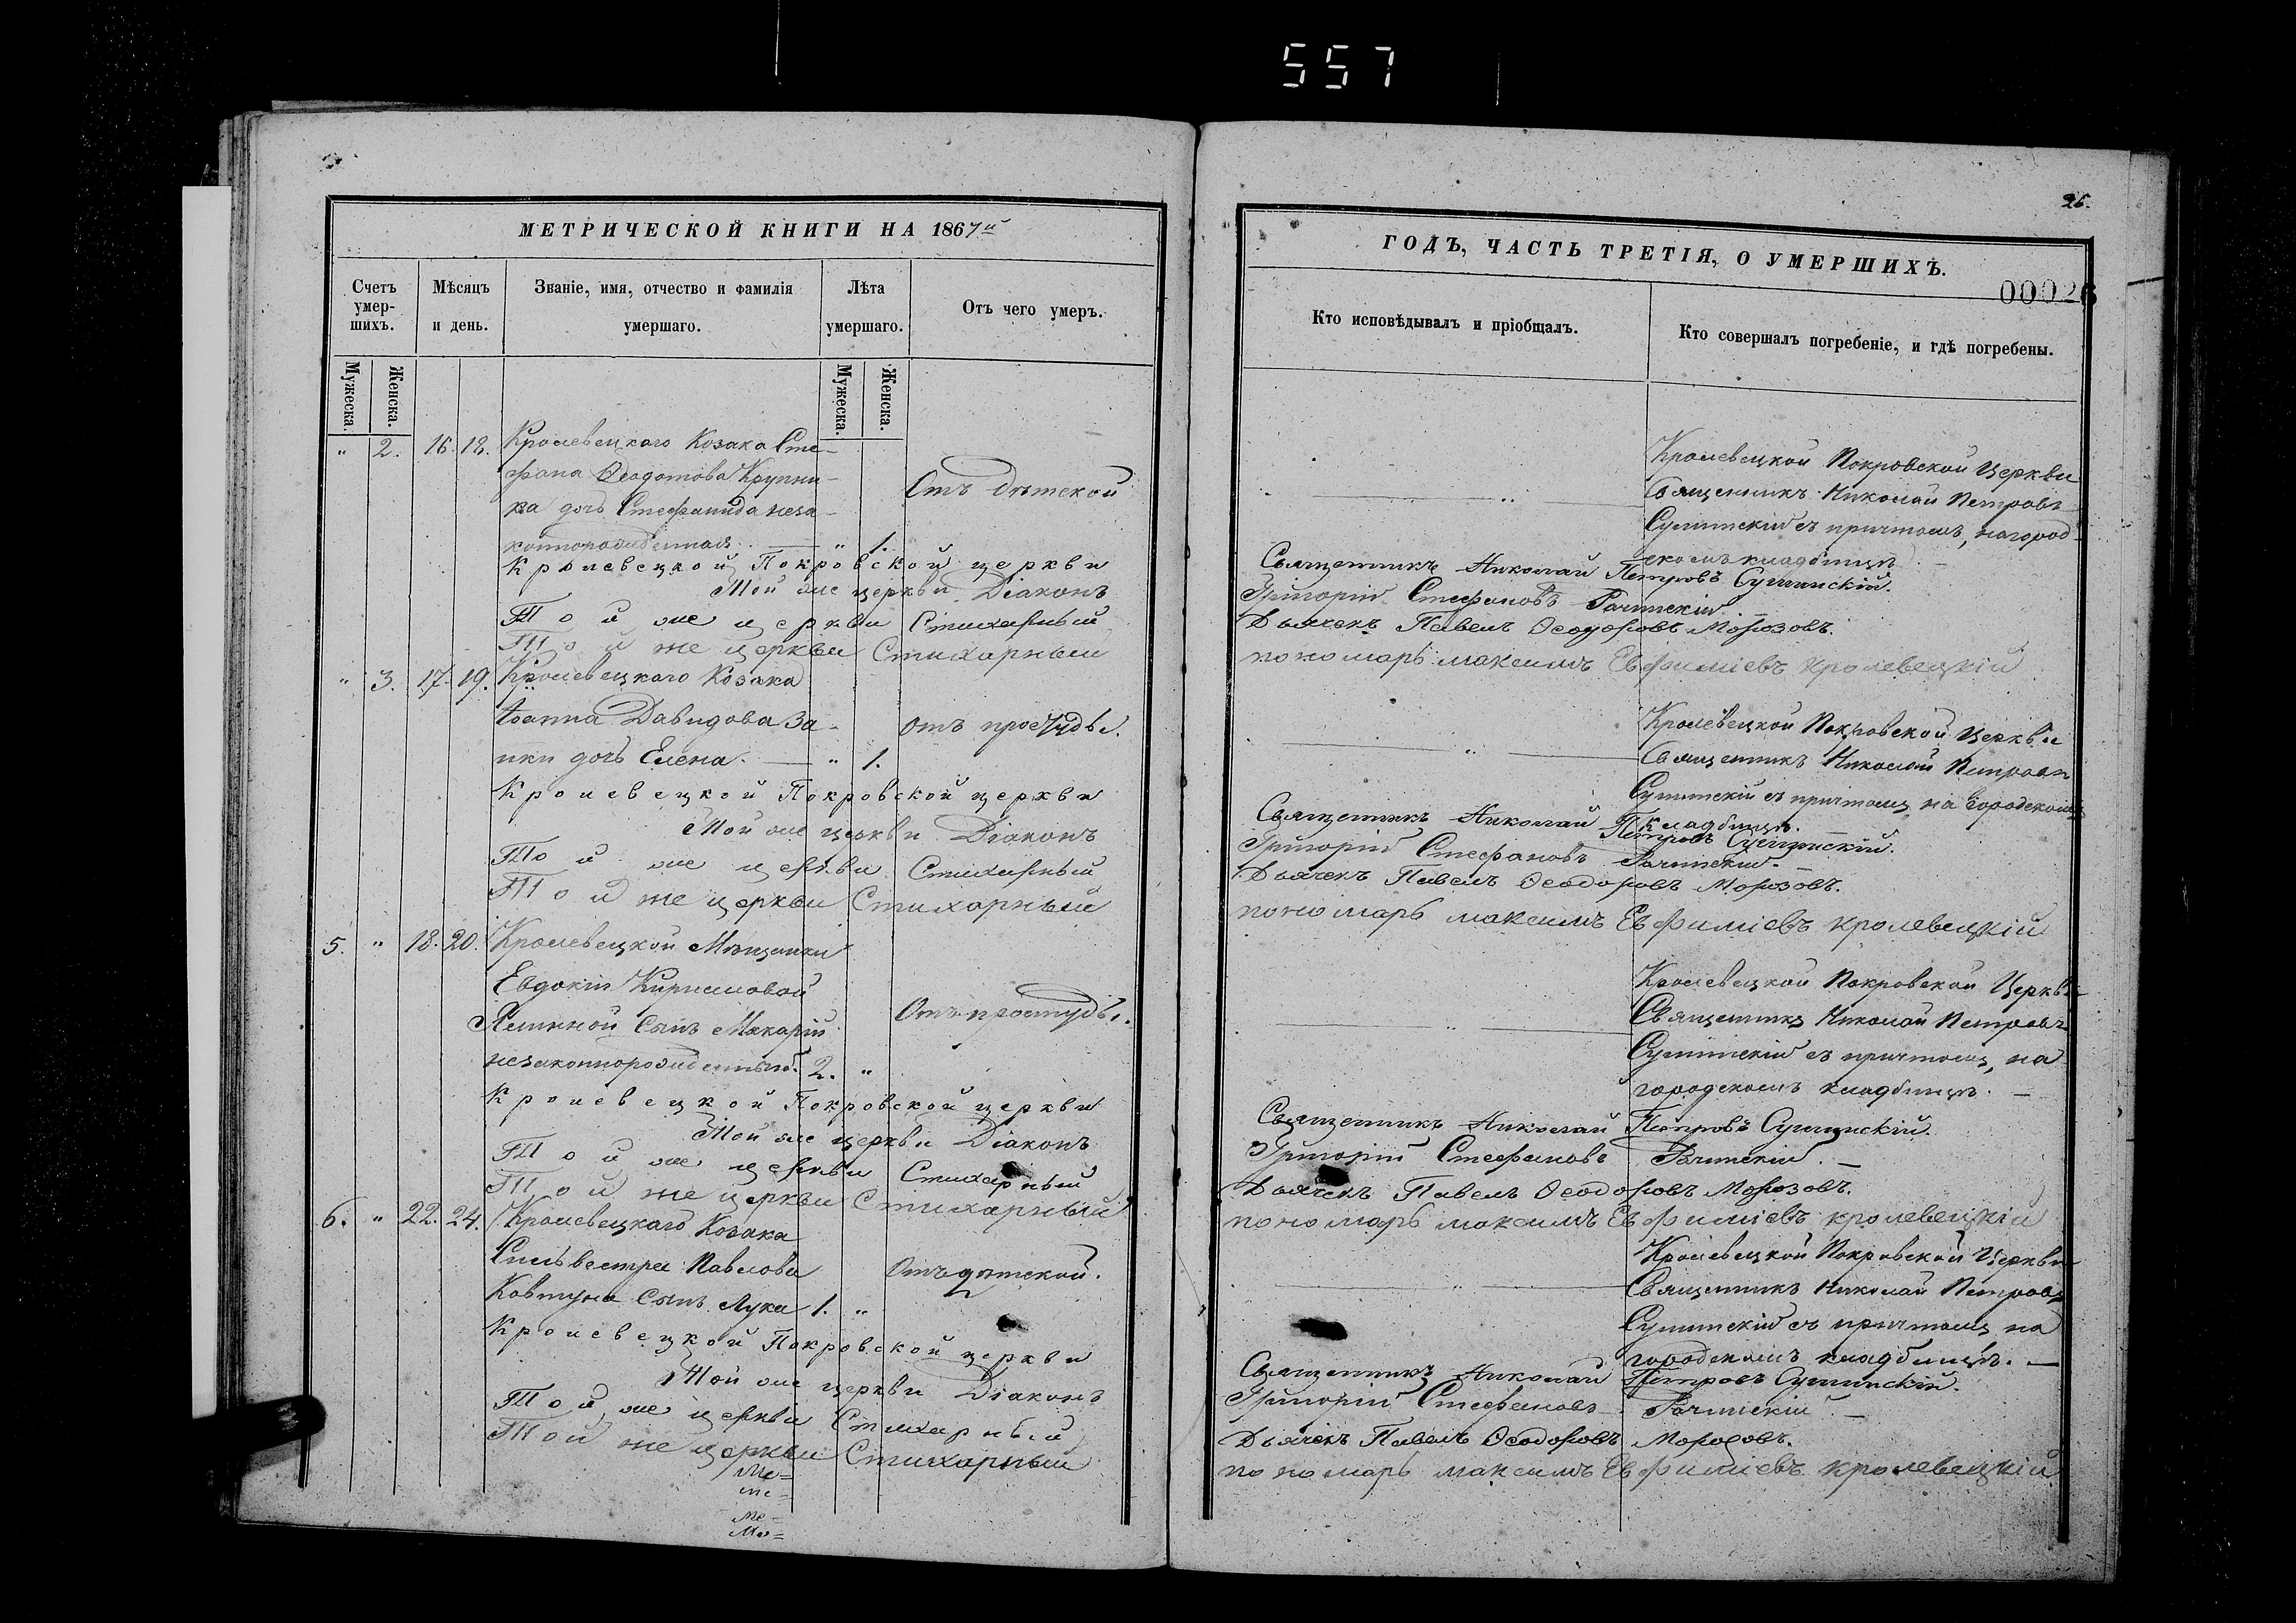 557
26.
МЕТРИЧЕСКОЙ КНИГИ НА 1867й
Счетъ умер-шихъ.
Мѣсяцъ и день.
Званіе, имя, отчество и фамилія умершаго.
Лѣта умершаго.
Отъ чего умеръ.
Мужеска.
Женска.
Мужеска.
Женска.
" 2. 16. 18. Кролевецкаго Козака Сте-
фана Ѳеодотова Крупни-
ка дочь Стефанида неза-
коннорожденная " 1.
Отъ дѣтской
Кролевецкой Покровской церкви
Той же церкви Діаконъ
Той же церкви Стихарный
Той же церкви Стихарный
" 3. 17. 19. Кролевецкаго Козака
Іоанна Давидова За-
ики дочь Елена. " 1.
отъ простуды.
Кролевецкой Покровской церкви
Той же церкви Діаконъ
Той же церкви Стихарный
Той же церкви Стихарный
5. " 18. 20. Кролевецкой Мѣщанки
Евдокіи Кирилловой
сынъ Макарій
незаконнорожденный. 2. "
Отъ простуды.
Кролевецкой Покровской церкви
Той же церкви Діаконъ
Той же церкви Стихарный
Той же церкви Стихарный
6. " 22. 24. Кролевецкаго Козака
Сильвестра Павлова
Ковтуна сынъ Лука 1. "
Отъ дѣтской.
Кролевецкой Покровской церкви
Той же церкви Діаконъ
Той же церкви Стихарный
Той же церкви Стихарный
ГОДЪ, ЧАСТЬ ТРЕТІЯ, О УМЕРШИХЪ.
00026
Кто исповѣдывалъ и пріобщалъ.
Кто совершалъ погребеніе, и гдѣ погребены.
Кролевецкой Покровской Церкви
Священникъ Николай Петровъ
съ причтомъ, на город-
скомъ кладбищѣ.
Священникъ Николай Петровъ
Григорій Стефановъ
Дьячекъ Павелъ Ѳеодоровъ Морозовъ.
пономарь максимъ Евфиміевъ кролевецкій
Кролевецкой Покровской Церкви
Священникъ Николай Петровъ
съ причтомъ на Городскомъ
кладбищѣ.
Священникъ Николай Петровъ
Григорій Стефановъ
Дьячекъ Павелъ Ѳеодоровъ Морозовъ.
пономарь максимъ Евфиміевъ кролевецкій
Кролевецкой Покровской Церкви
Священникъ Николай Петровъ
съ причтомъ, на
городскомъ кладбищѣ.
Священникъ Николай Петровъ
Григорій Стефановъ
Дьячекъ Павелъ Ѳеодоровъ Морозовъ.
пономарь максимъ Евфиміевъ кролевецкій
Кролевецкой Покровской Церкви
Священникъ Николай Петровъ
съ причтомъ на
городскомъ кладбищѣ.
Священникъ Николай Петровъ
Григорій Стефановъ
Дьячекъ Павелъ Ѳеодоровъ Морозовъ.
пономарь максимъ Евфиміевъ кролевецкій